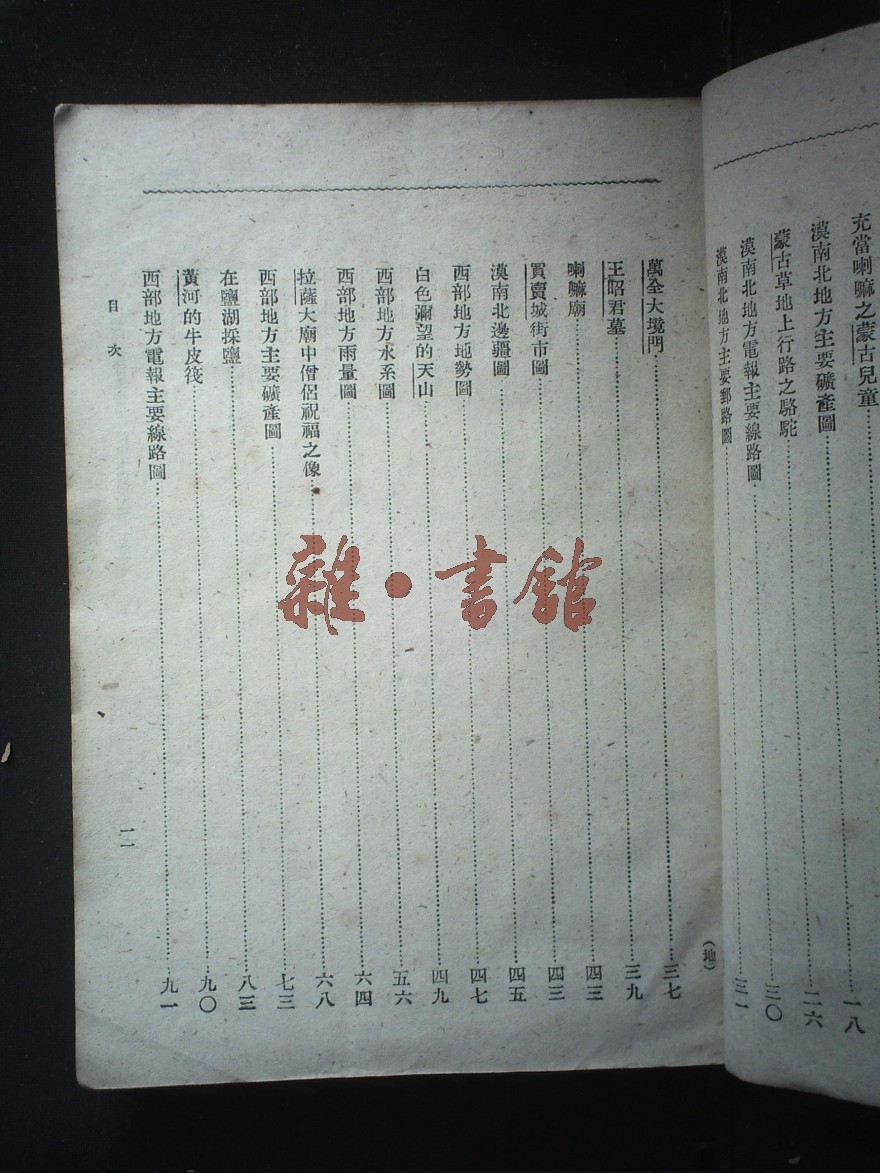 充當喇嘛之蒙古兒童……一八
漠南北地方主要礦產圖……二六
蒙古草地上行路之駱駝……三〇
漠南北地方電報主要線路圖……三一
漠南北地方主要郵路圖
(地)
萬全大境門……三七
王昭君墓……三九
喇嘛廟……四三
買賣城街市圖……四三
漠南北邊疆圖……四五
西部地方地勢圖……四七
白色彌望的天山……四九
西部地方水系圖……五六
西部地方雨量圖……六四
拉薩大廟中僧侶祝福之像……六八
西部地方主要礦產圖……七三
在鹽湖採鹽……八三
黃河的牛皮筏……九〇
西部地方電報主要線路圖……九一
目次
雜·書館